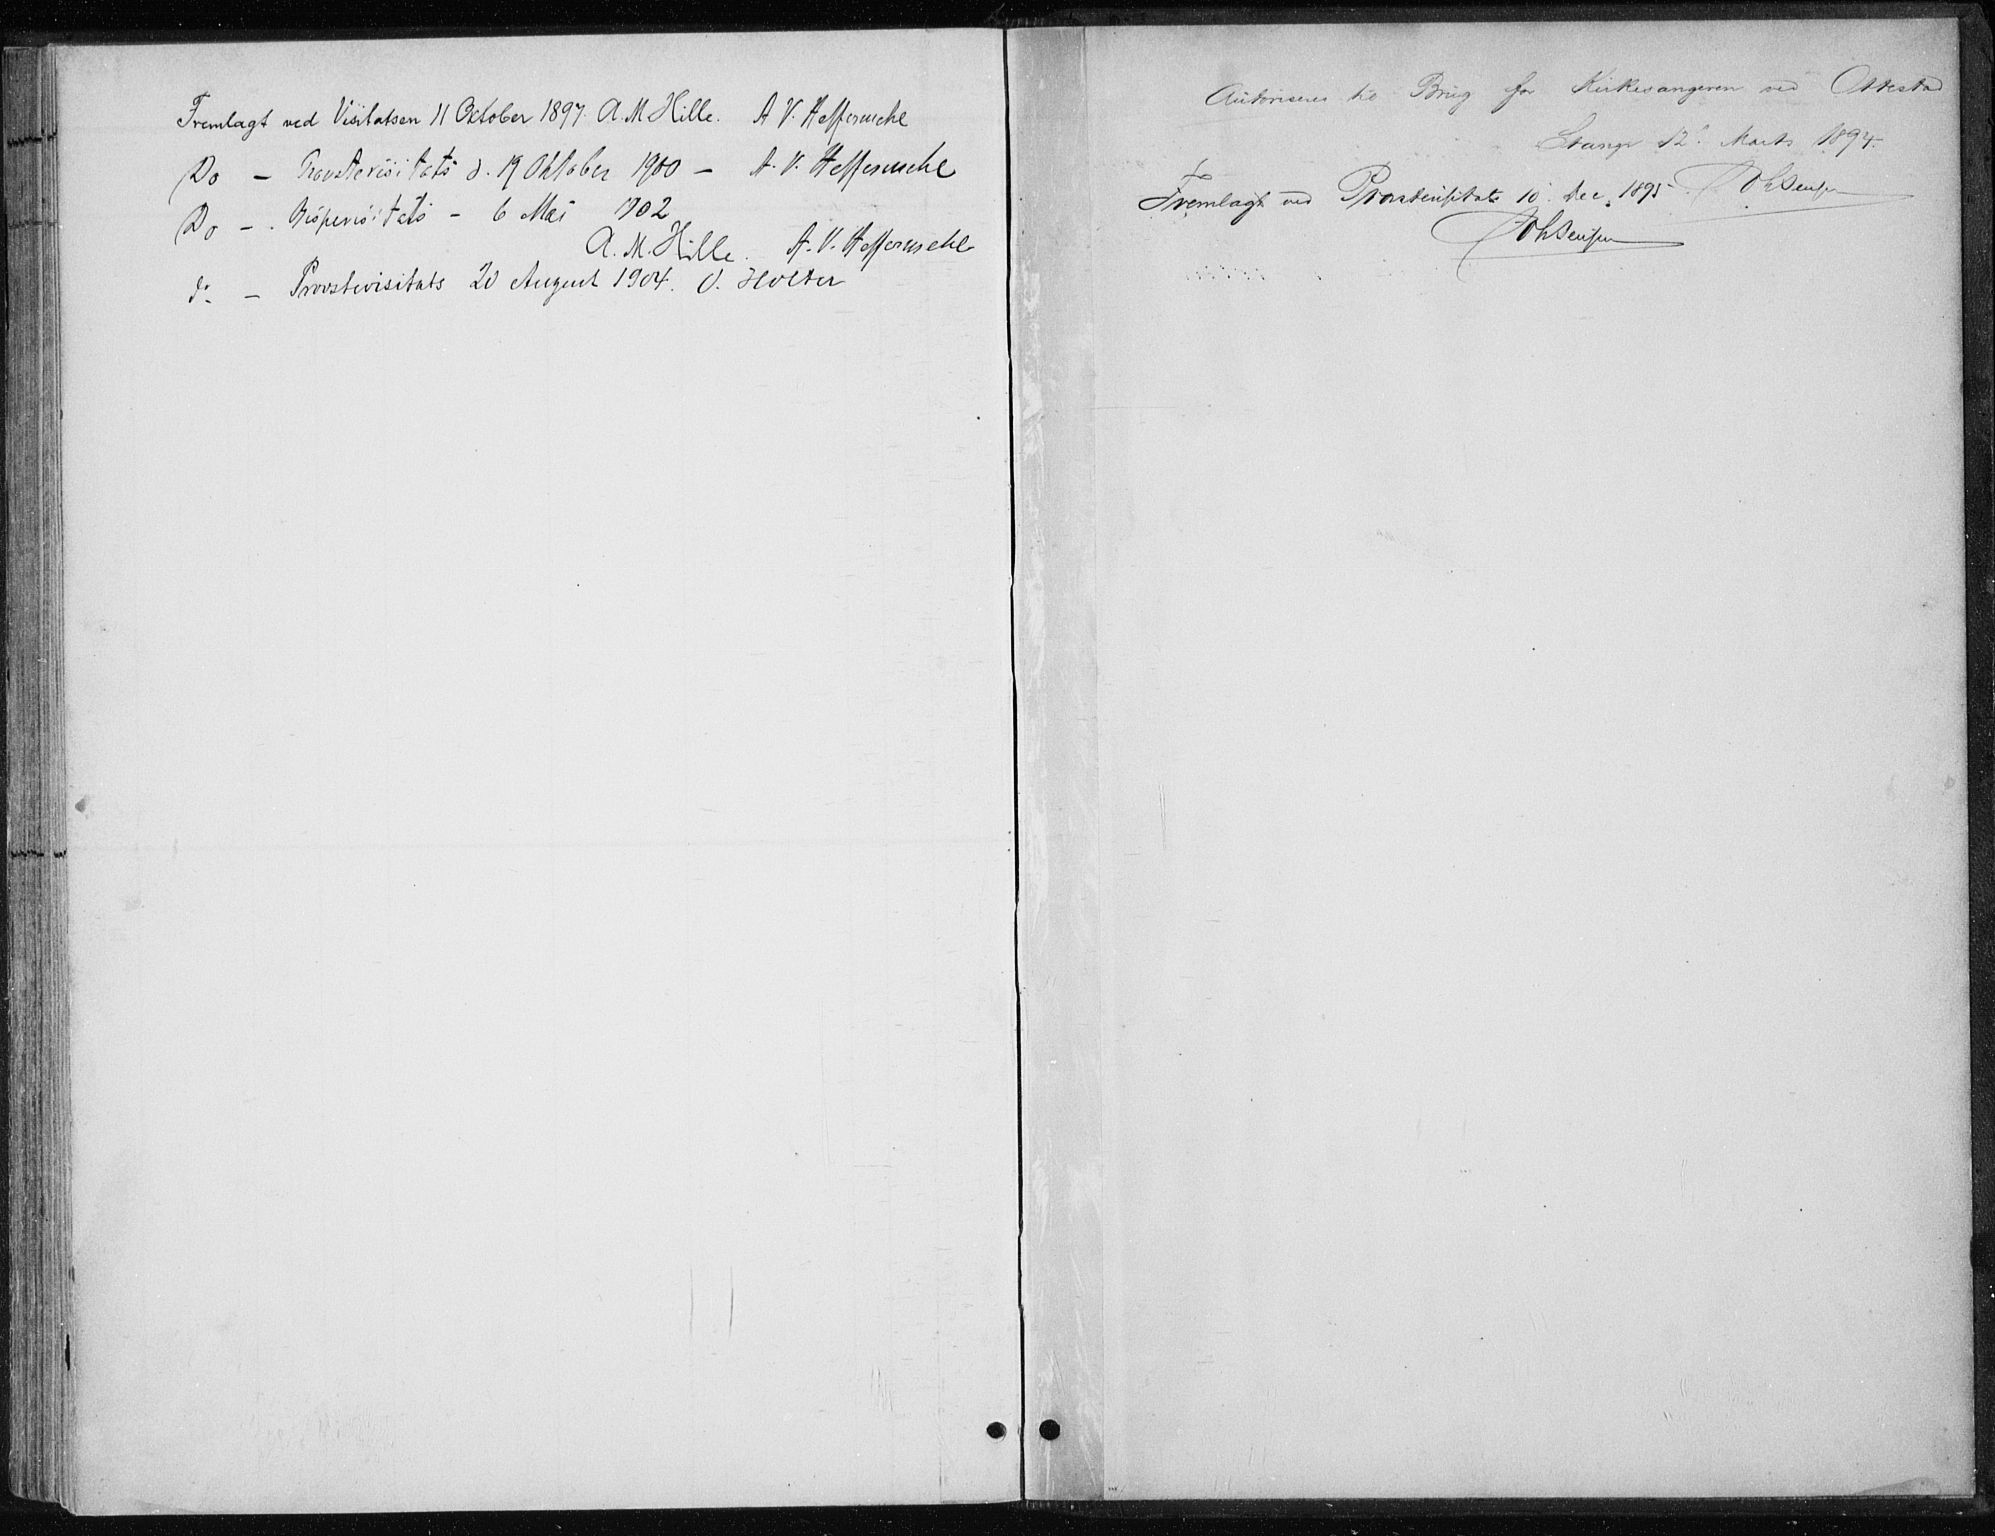 Fremlagt ved Visitatsen 11 October 1897. A. M. Hille. A V. Heffermehl
Do – Provstevisitats d. 19 Oktober 1900 – A. V. Heffermehl
Do – Bispevisitats – 6 Mai 1902
A. M. Hille. A. V. Heffermehl
do – Provstevisitats 20 August 1904. O. Holter
Autoriseres til Brug for Kirkesangeren ved Ottestad
Stange 12 Marts 1894.
Fremlagt ved Provstevisitats 10 Dec. 1895.